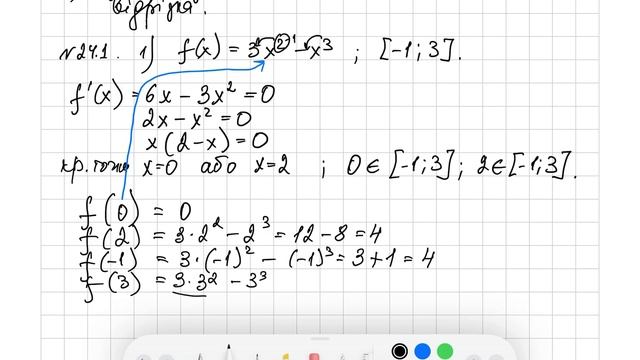 відрізка".
№24.1. 1) f(x) = 3x² - x³ ; [-1; 3].
f'(x) = 6x - 3x² = 0
2x - x² = 0
x(2-x) = 0
кр. точки x=0 або x=2 ; 0 ∈ [-1; 3]; 2 ∈ [-1; 3].
f(0) = 0
f(2) = 3·2² - 2³ = 12 - 8 = 4
f(-1) = 3·(-1)² - (-1)³ = 3 + 1 = 4
f(3) = 3·3² - 3³